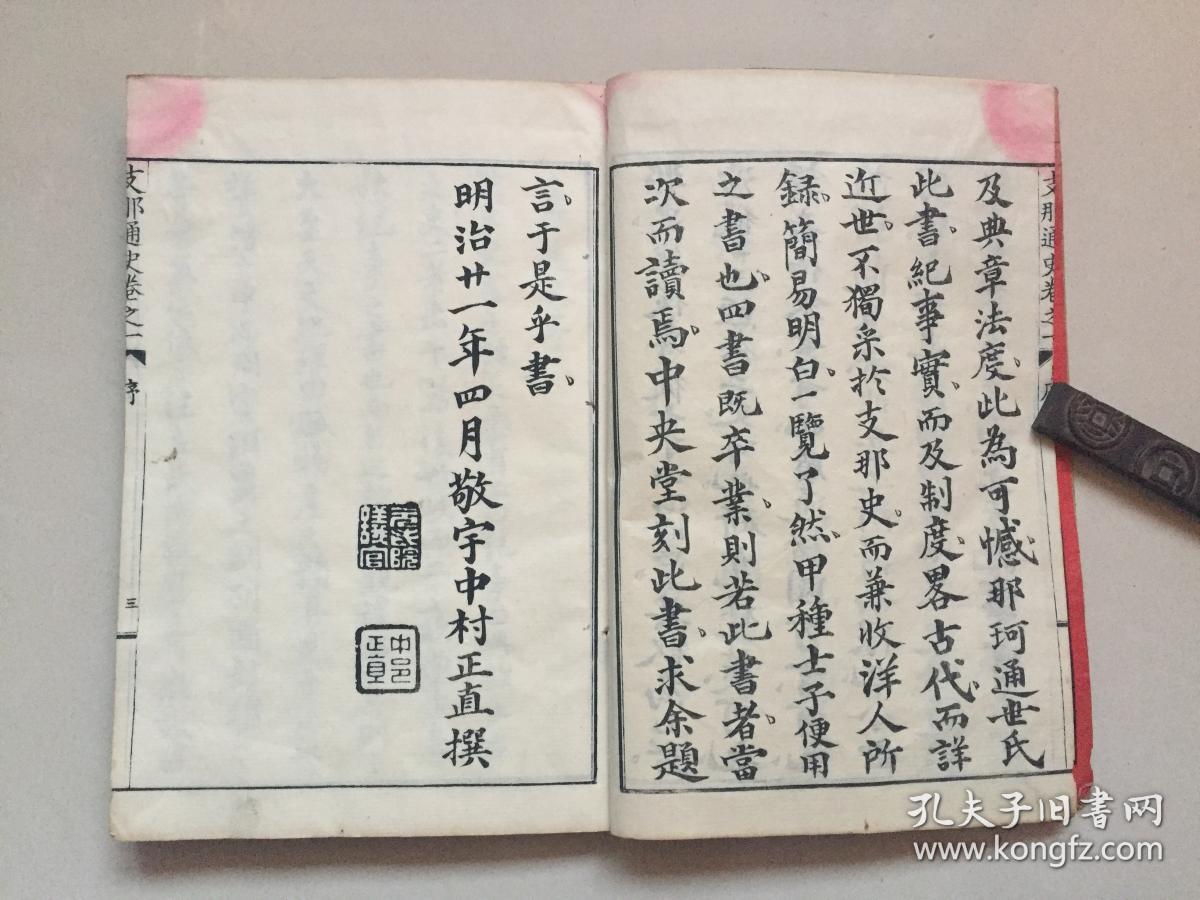 及典章法度此為可憾那珂通世氏
此書紀事實而及制度畧古代而詳
近世不獨采於支那史而兼收洋人所
録簡易明白一覽了然甲種士子便用
之書也四書既卒業則若此書者當
次而讀焉中央堂刻此書求余題
言于是乎書
明治廿一年四月敬宇中村正直撰
支那通史卷之一
序
三
支那通史卷之一
中邨正直
孔夫子旧书网
www.kongfz.com